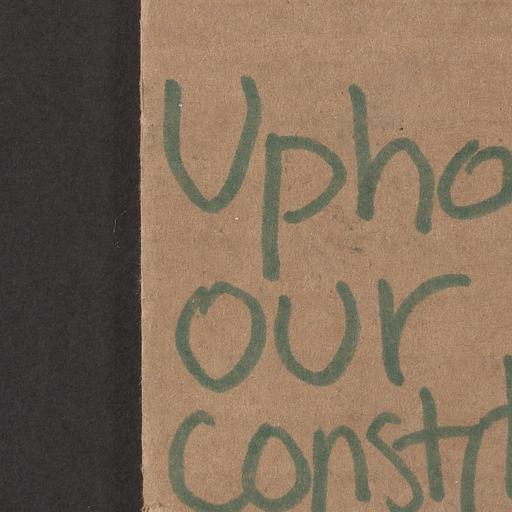 Upho
our
constit